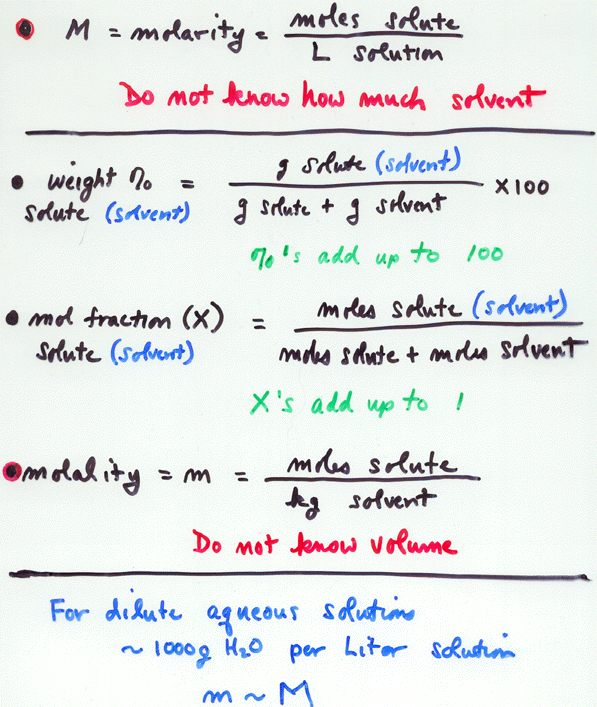 • M = molarity = moles solute / L solution
Do not know how much solvent
• weight % solute (solvent) = g solute (solvent) / g solute + g solvent × 100
%'s add up to 100
• mol fraction (X) solute (solvent) = moles solute (solvent) / moles solute + moles solvent
X's add up to 1
• molality = m = moles solute / kg solvent
Do not know volume
For dilute aqueous solutions
~ 1000g H₂O per Liter solution
m ~ M